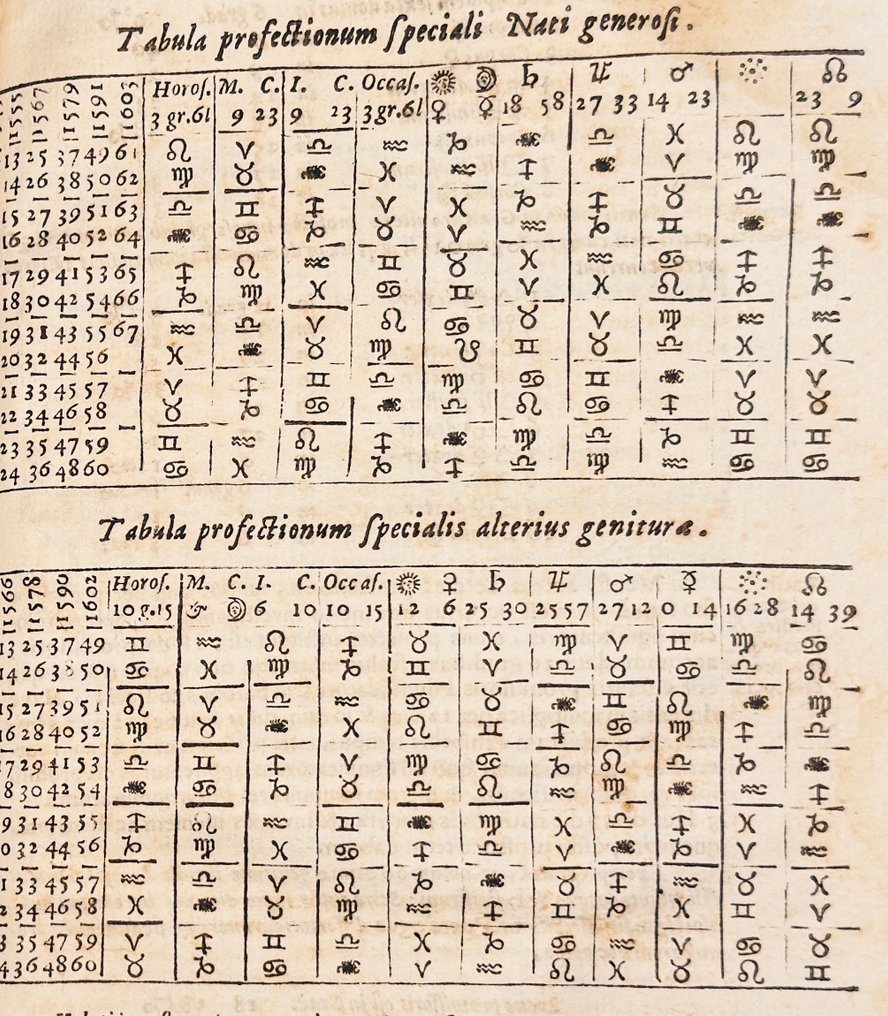 Tabula profectionum speciali Nati generosi.
1555 1567 1579 1591 1603 Horos. M. C. I. C. Occas. ☉ ☽ ♄ ♃ ♂ ☊
3 gr.61 9 23 9 23 3gr.61 ♀ ☿ 18 58 27 33 14 23 23 9
13 25 37 49 61 ♌ ♈ ♎ ♒ ♑ ♏ ♎ ♓ ♌ ♌
14 26 38 50 62 ♍ ♉ ♏ ♓ ♒ ♐ ♏ ♈ ♍ ♍
15 27 39 51 63 ♎ ♊ ♐ ♈ ♓ ♑ ♐ ♉ ♎ ♎
16 28 40 52 64 ♏ ♋ ♑ ♉ ♈ ♒ ♑ ♊ ♏ ♏
17 29 41 53 65 ♐ ♌ ♒ ♊ ♉ ♓ ♒ ♋ ♐ ♐
18 30 42 54 66 ♑ ♍ ♓ ♋ ♊ ♈ ♓ ♌ ♑ ♑
19 31 43 55 67 ♒ ♎ ♈ ♌ ♋ ♉ ♈ ♍ ♒ ♒
20 32 44 56 ♓ ♏ ♉ ♍ ☋ ♊ ♉ ♎ ♓ ♓
21 33 45 57 ♈ ♐ ♊ ♎ ♍ ♋ ♊ ♏ ♈ ♈
22 34 46 58 ♉ ♑ ♋ ♏ ♎ ♌ ♋ ♐ ♉ ♉
23 35 47 59 ♊ ♒ ♌ ♐ ♏ ♍ ♎ ♑ ♊ ♊
24 36 48 60 ♋ ♓ ♍ ♑ ♐ ♎ ♍ ♒ ♋ ♋
Tabula profectionum specialis alterius genituræ.
1566 1578 1590 1602 Horos. M. C. I. C. Occas. ☉ ♀ ♄ ♃ ♂ ☿ ☊
10 g.15 ☽ 6 10 10 15 12 6 25 30 25 57 27 12 0 14 16 28 14 39
13 25 37 49 ♊ ♒ ♌ ♐ ♉ ♓ ♍ ♈ ♊ ♍ ♋
14 26 38 50 ♋ ♓ ♍ ♑ ♊ ♈ ♎ ♉ ♋ ♎ ♌
15 27 39 51 ♌ ♈ ♎ ♒ ♋ ♉ ♏ ♊ ♌ ♏ ♍
16 28 40 52 ♍ ♉ ♏ ♓ ♌ ♊ ♐ ♋ ♍ ♐ ♎
17 29 41 53 ♎ ♊ ♐ ♈ ♍ ♋ ♑ ♌ ♎ ♑ ♏
8 30 42 54 ♏ ♋ ♑ ♉ ♎ ♌ ♒ ♍ ♏ ♒ ♐
9 31 43 55 ♐ ♌ ♒ ♊ ♏ ♍ ♓ ♎ ♐ ♓ ♑
0 32 44 56 ♑ ♍ ♓ ♋ ♐ ♎ ♈ ♏ ♑ ♈ ♒
1 33 45 57 ♒ ♎ ♈ ♌ ♑ ♏ ♉ ♐ ♒ ♉ ♓
2 34 46 58 ♓ ♏ ♉ ♍ ♒ ♐ ♊ ♑ ♓ ♊ ♈
3 35 47 59 ♈ ♐ ♊ ♎ ♓ ♑ ♋ ♒ ♈ ♋ ♉
4 36 48 60 ♉ ♑ ♋ ♏ ♈ ♒ ♌ ♓ ♉ ♌ ♊